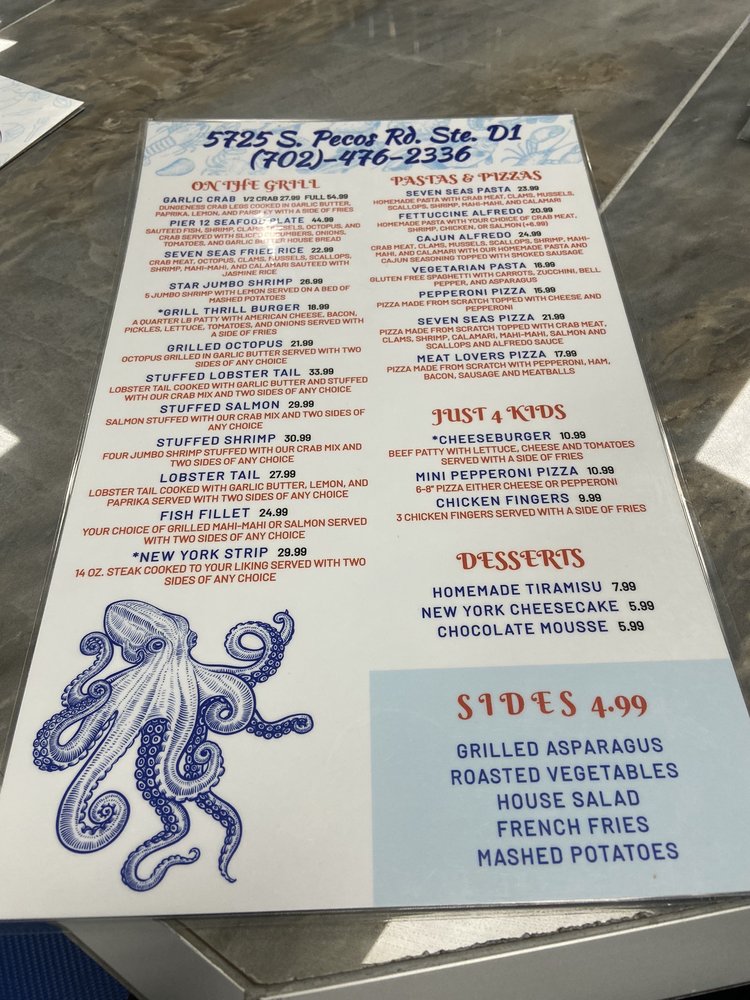 5725 S. Pecos Rd. Ste. D1
(702)-476-2336
ON THE GRILL
GARLIC CRAB 1/2 CRAB 27.99 FULL 54.99
DUNGENESS CRAB LEGS COOKED IN GARLIC BUTTER,
PAPRIKA, LEMON, AND PARSLEY WITH A SIDE OF FRIES
PIER 12 SEAFOOD PLATE 44.99
SAUTEED FISH, SHRIMP, CLAMS, MUSSELS, OCTOPUS, AND
CRAB SERVED WITH SLICED CUCUMBERS, ONIONS,
TOMATOES, AND GARLIC BUTTER HOUSE BREAD
SEVEN SEAS FRIED RICE 22.99
CRAB MEAT, OCTOPUS, CLAMS, MUSSELS, SCALLOPS,
SHRIMP, MAHI-MAHI, AND CALAMARI SAUTEED WITH
JASMINE RICE
STAR JUMBO SHRIMP 26.99
5 JUMBO SHRIMP WITH LEMON SERVED ON A BED OF
MASHED POTATOES
*GRILL THRILL BURGER 18.99
A QUARTER LB PATTY WITH AMERICAN CHEESE, BACON,
PICKLES, LETTUCE, TOMATOES, AND ONIONS SERVED WITH
A SIDE OF FRIES
GRILLED OCTOPUS 21.99
OCTOPUS GRILLED IN GARLIC BUTTER SERVED WITH TWO
SIDES OF ANY CHOICE
STUFFED LOBSTER TAIL 33.99
LOBSTER TAIL COOKED WITH GARLIC BUTTER AND STUFFED
WITH OUR CRAB MIX AND TWO SIDES OF ANY CHOICE
STUFFED SALMON 29.99
SALMON STUFFED WITH OUR CRAB MIX AND TWO SIDES OF
ANY CHOICE
STUFFED SHRIMP 30.99
FOUR JUMBO SHRIMP STUFFED WITH OUR CRAB MIX AND
TWO SIDES OF ANY CHOICE
LOBSTER TAIL 27.99
LOBSTER TAIL COOKED WITH GARLIC BUTTER, LEMON, AND
PAPRIKA SERVED WITH TWO SIDES OF ANY CHOICE
FISH FILLET 24.99
YOUR CHOICE OF GRILLED MAHI-MAHI OR SALMON SERVED
WITH TWO SIDES OF ANY CHOICE
*NEW YORK STRIP 29.99
14 OZ. STEAK COOKED TO YOUR LIKING SERVED WITH TWO
SIDES OF ANY CHOICE
PASTAS & PIZZAS
SEVEN SEAS PASTA 23.99
HOMEMADE PASTA WITH CRAB MEAT, CLAMS, MUSSELS,
SCALLOPS, SHRIMP, MAHI-MAHI, AND CALAMARI
FETTUCCINE ALFREDO 20.99
HOMEMADE PASTA WITH YOUR CHOICE OF CRAB MEAT,
SHRIMP, CHICKEN, OR SALMON (+6.99)
CAJUN ALFREDO 24.99
CRAB MEAT, CLAMS, MUSSELS, SCALLOPS, SHRIMP, MAHI-
MAHI, AND CALAMARI WITH OUR HOMEMADE PASTA AND
CAJUN SEASONING TOPPED WITH SMOKED SAUSAGE
VEGETARIAN PASTA 16.99
GLUTEN FREE SPAGHETTI WITH CARROTS, ZUCCHINI, BELL
PEPPER, AND ASPARAGUS
PEPPERONI PIZZA 15.99
PIZZA MADE FROM SCRATCH TOPPED WITH CHEESE AND
PEPPERONI
SEVEN SEAS PIZZA 21.99
PIZZA MADE FROM SCRATCH TOPPED WITH CRAB MEAT,
CLAMS, SHRIMP, CALAMARI, MAHI-MAHI, SALMON AND
SCALLOPS AND ALFREDO SAUCE
MEAT LOVERS PIZZA 17.99
PIZZA MADE FROM SCRATCH WITH PEPPERONI, HAM,
BACON, SAUSAGE AND MEATBALLS
JUST 4 KIDS
*CHEESEBURGER 10.99
BEEF PATTY WITH LETTUCE, CHEESE AND TOMATOES
SERVED WITH A SIDE OF FRIES
MINI PEPPERONI PIZZA 10.99
6-8" PIZZA EITHER CHEESE OR PEPPERONI
CHICKEN FINGERS 9.99
3 CHICKEN FINGERS SERVED WITH A SIDE OF FRIES
DESSERTS
HOMEMADE TIRAMISU 7.99
NEW YORK CHEESECAKE 5.99
CHOCOLATE MOUSSE 5.99
SIDES 4.99
GRILLED ASPARAGUS
ROASTED VEGETABLES
HOUSE SALAD
FRENCH FRIES
MASHED POTATOES